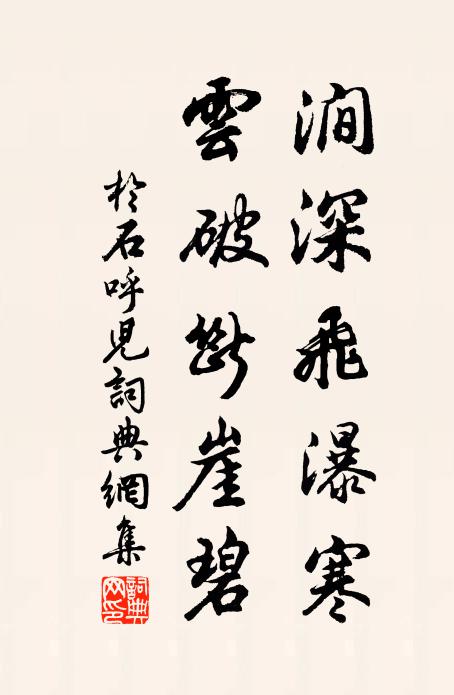 澗深飛瀑寒
雲破斷崖碧
於石呼兒詞典網集
詞典網印